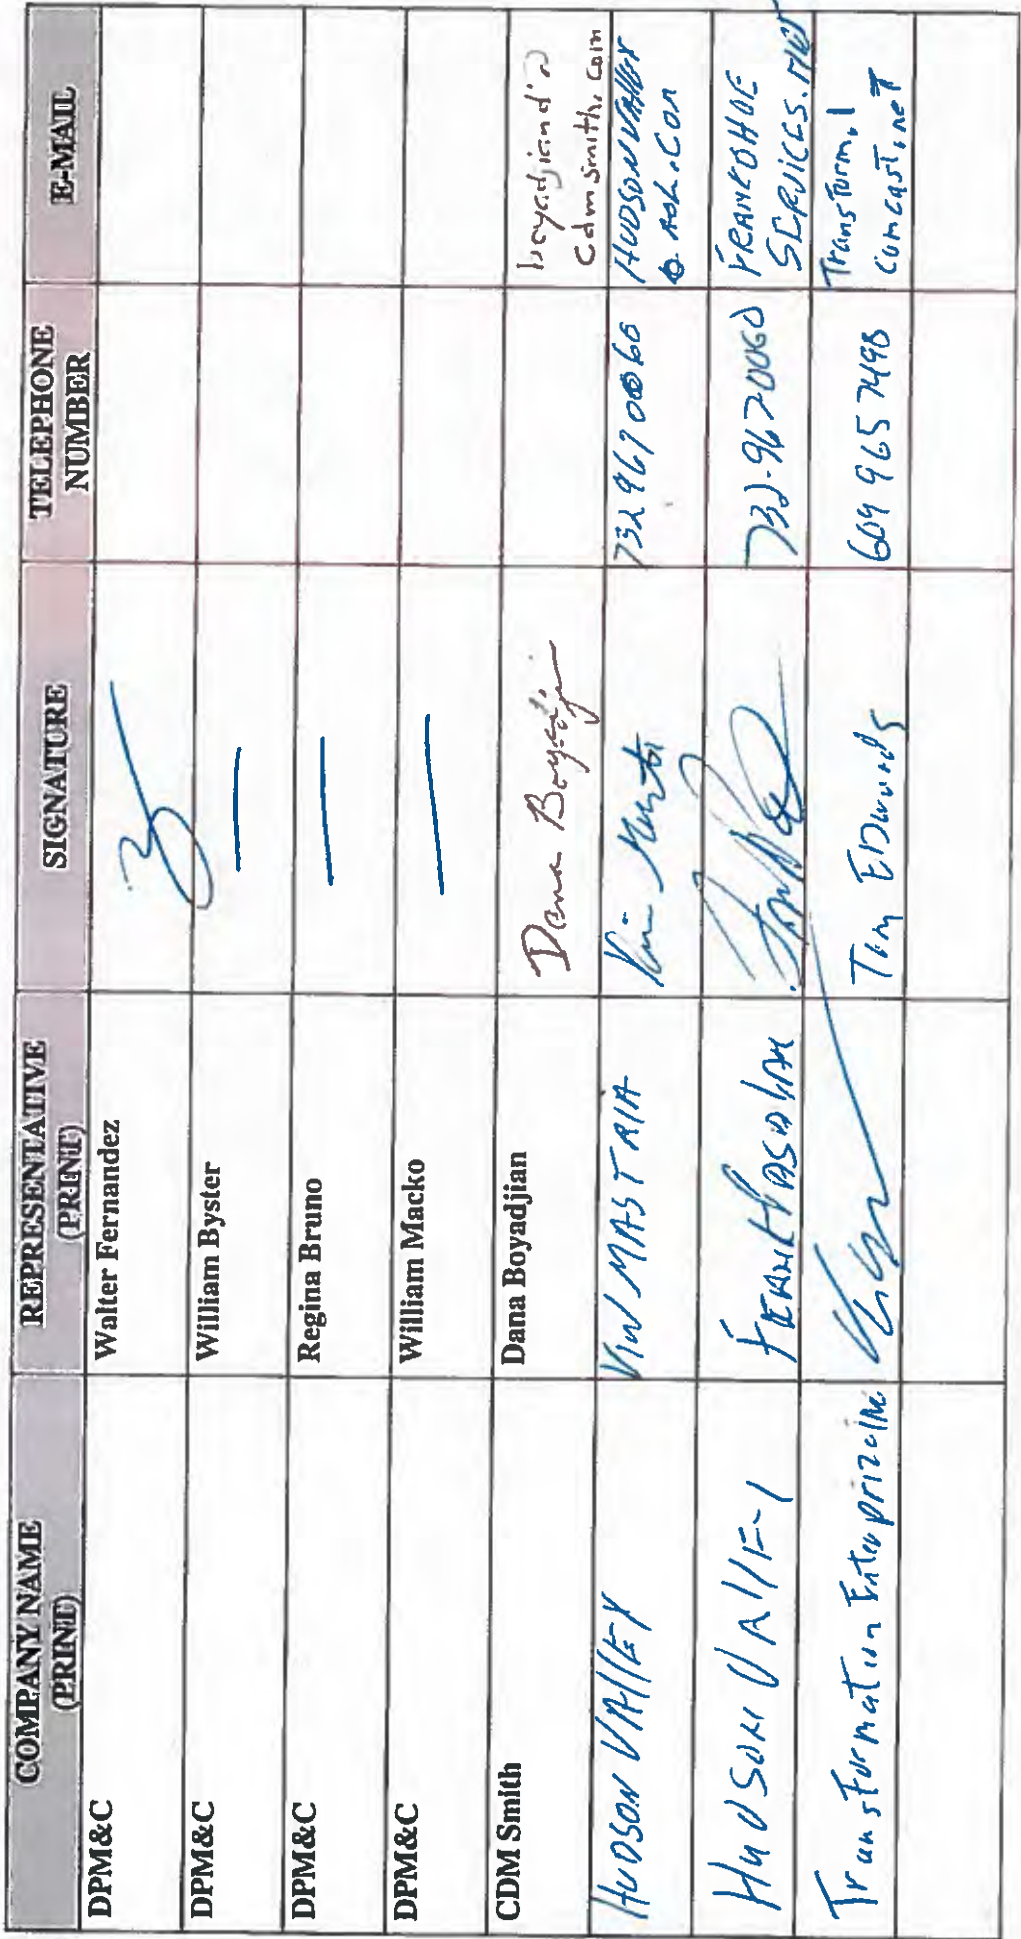 COMPANY NAME (PRINT) REPRESENTATIVE (PRINT) SIGNATURE TELEPHONE NUMBER E-MAIL
DPM&C Walter Fernandez
DPM&C William Byster —
DPM&C Regina Bruno —
DPM&C William Macko —
CDM Smith Dana Boyadjian Dana cdmsmith.com
HUDSON VALLEY VIN MASTRIA 732 967 0060 HUDSONVALLEY @ AOL.COM
HUDSON VALLEY 732-967 0060 FRANK@HDE SERVICES.NET
Transformation Enterprize Inc Tim EDwards 609 965 7498 Transform1 comcast.net